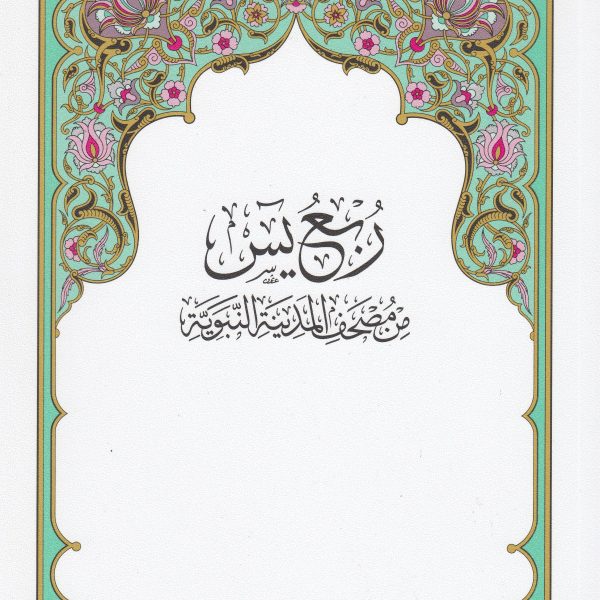 رُبْعُ يسٓ
مِن مُصْحَفِ المَدِينَةِ النَّبَوِيَّةِ